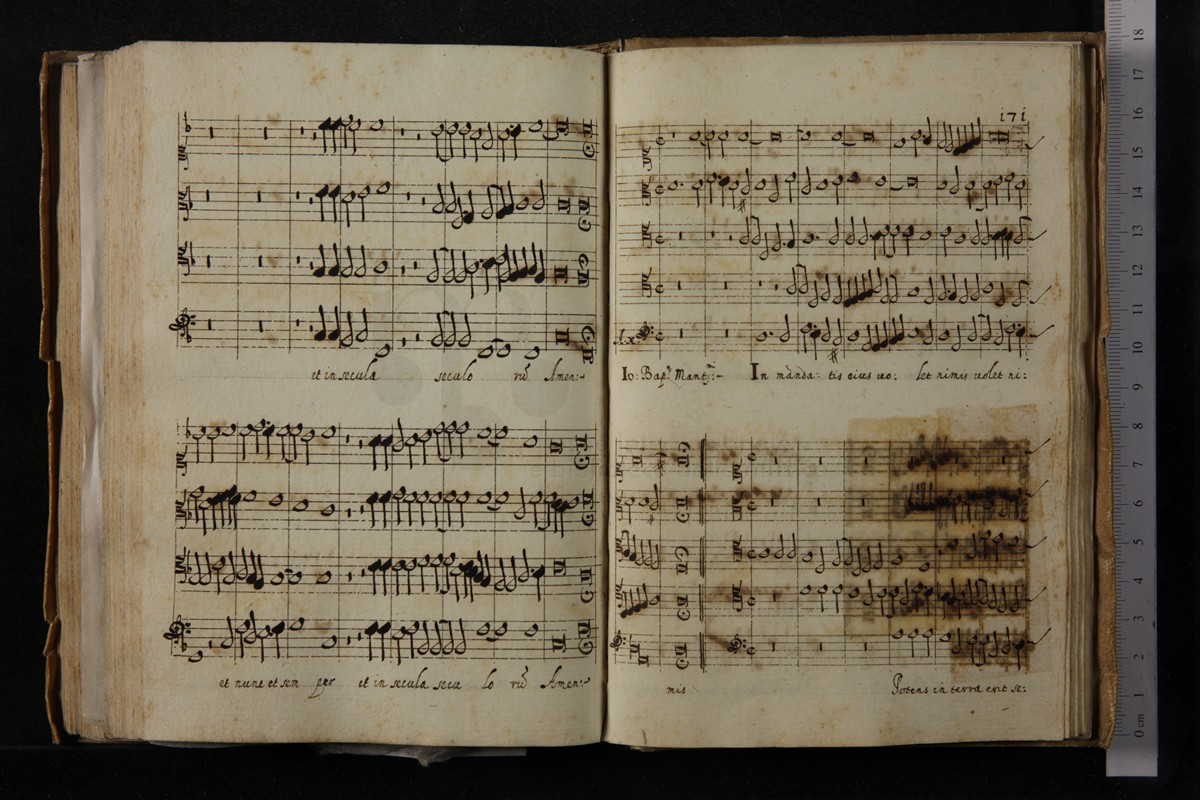 et in secula seculo rũ Amen:
et nunc et sem per et in secula secu lo rũ Amen:
171
Io: Bap. In manda: tis eius uo: let nimis uolet ni:
mis Potens in terra erit se:
18
17
16
15
14
13
12
11
10
9
8
7
6
5
4
3
2
1
0 cm